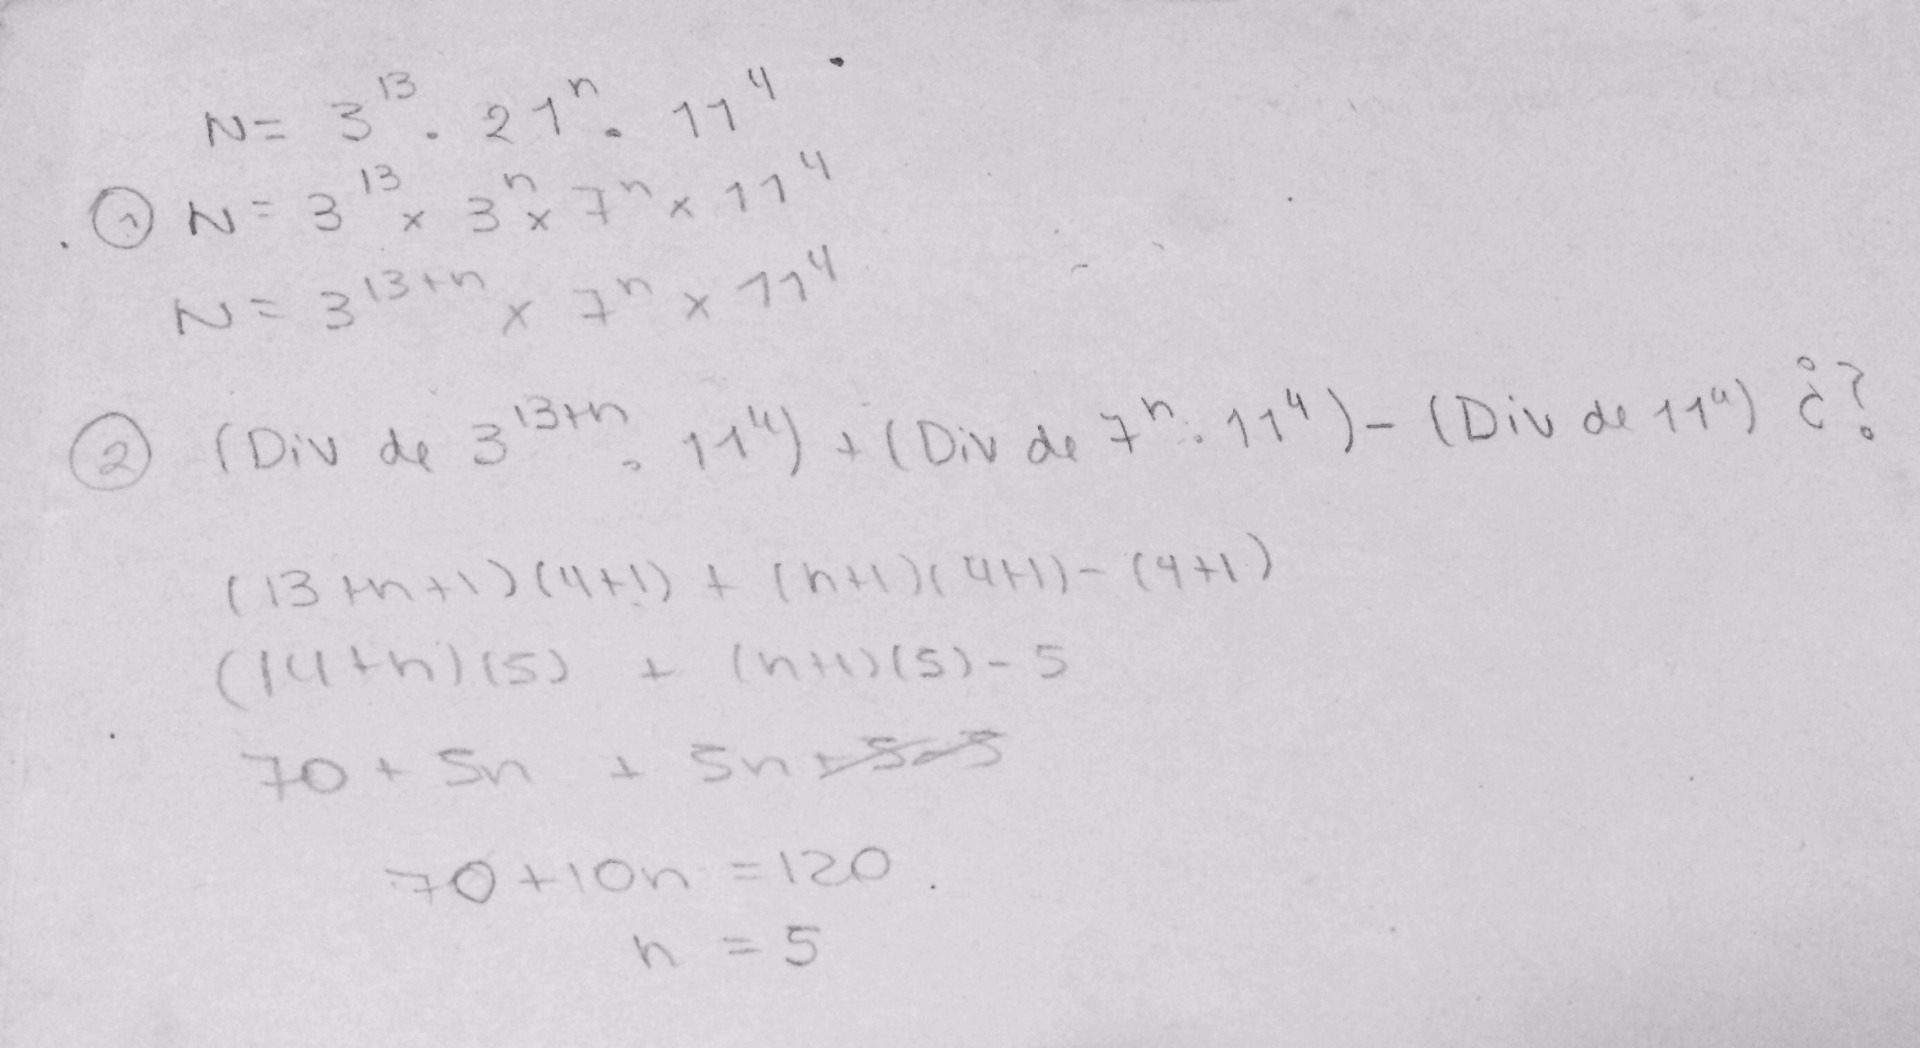 N = 3^13 . 21^n . 11^4
① N = 3^13 x 3^n x 7^n x 11^4
N = 3^(13+n) x 7^n x 11^4
② (Div de 3^(13+n) . 11^4) + (Div de 7^n . 11^4) - (Div de 11^4) ¿?
(13+n+1)(4+1) + (n+1)(4+1) - (4+1)
(14+n)(5) + (n+1)(5) - 5
70 + 5n + 5n + 5 - 5
70 + 10n = 120
n = 5